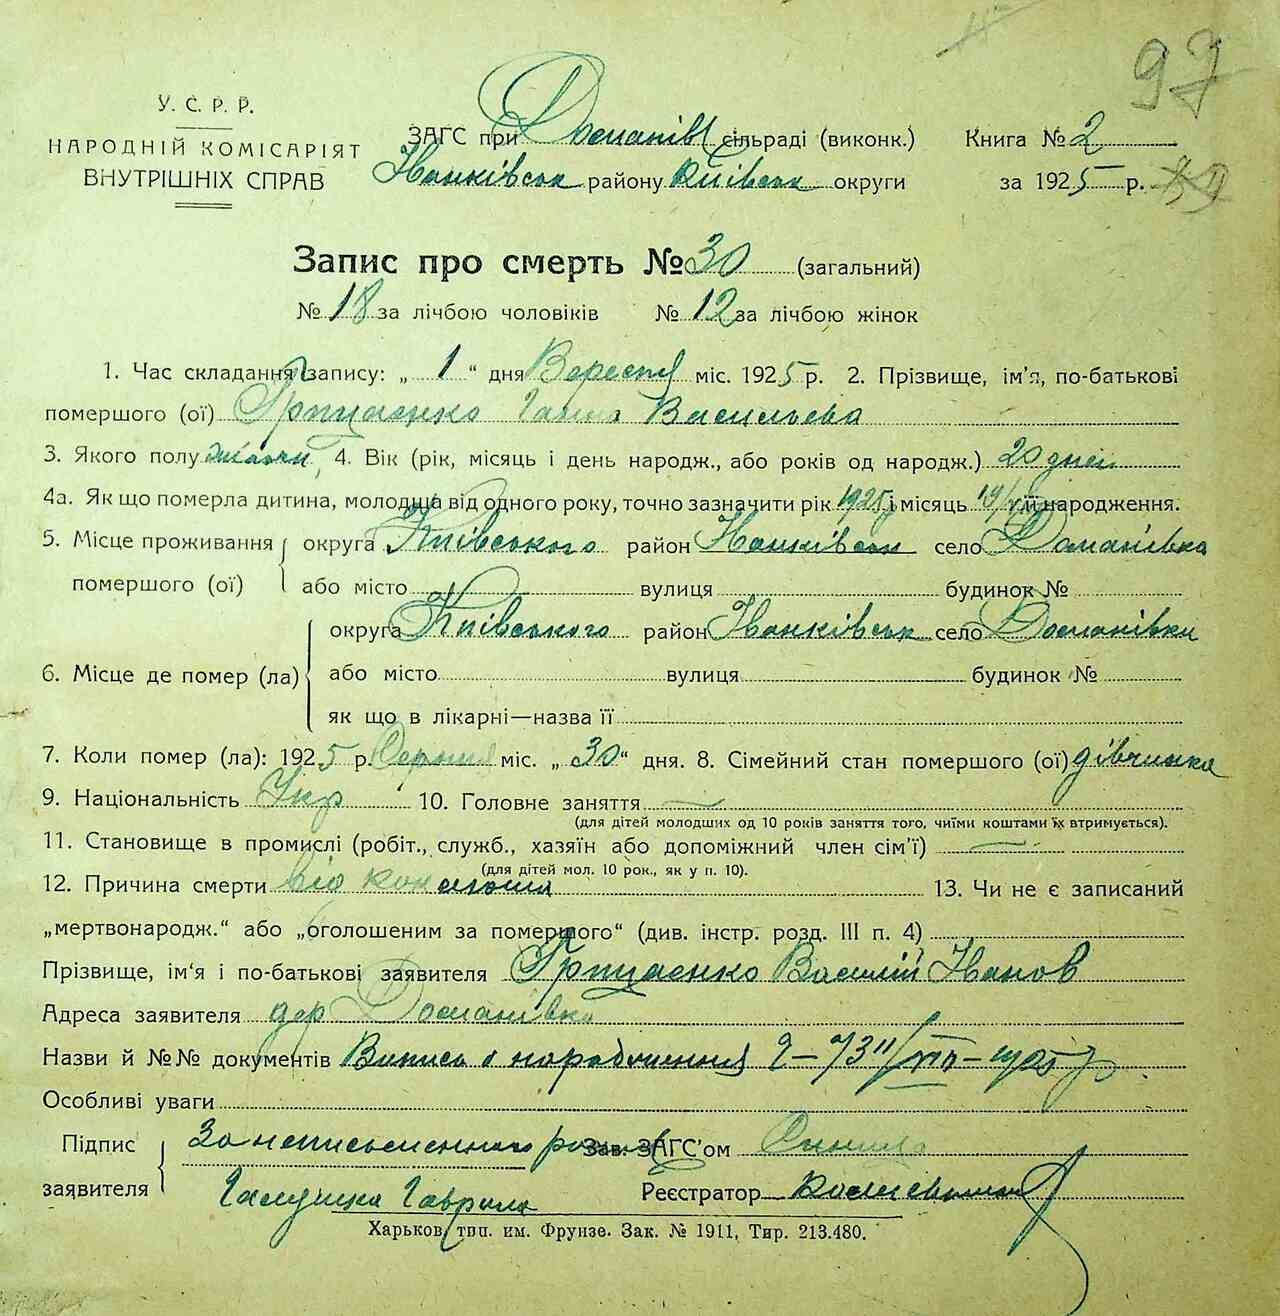 97
У. С. Р. Р.
НАРОДНІЙ КОМІСАРІЯТ
ВНУТРІШНІХ СПРАВ
ЗАГС при Доманів сільраді (виконк.) Книга № 2
Іванківськ району Київськ округи за 1925 р.
Запис про смерть № 30 (загальний)
№ 18 за лічбою чоловіків № 12 за лічбою жінок
1. Час складання запису: „ 1 “ дня Вересня міс. 1925 р. 2. Прізвище, ім'я, по-батькові
помершого (ої) Грищенко Ганна Васильева
3. Якого полу 4. Вік (рік, місяць і день народж., або років од народж.) 20 дней
4а. Як що померла дитина, молодша від одного року, точно зазначити рік 1925 і місяць її народження.
5. Місце проживання округа Київського район Іванківськ село Доманівка
помершого (ої) або місто вулиця будинок №
округа Київського район Іванківськ село Доманівки
6. Місце де помер (ла) або місто вулиця будинок №
як що в лікарні—назва її
7. Коли помер (ла): 1925 р. Серпня міс. „ 30 “ дня. 8. Сімейний стан помершого (ої) дівчинка
9. Національність Укр 10. Головне заняття
(для дітей молодших од 10 років заняття того, чиїми коштами їх втримується).
11. Становище в промислі (робіт., служб., хазяїн або допоміжний член сім'ї)
(для дітей мол. 10 рок., як у п. 10).
12. Причина смерти від 13. Чи не є записаний
„мертвонародж.“ або „оголошеним за помершого“ (див. інстр. розд. III п. 4)
Прізвище, ім'я і по-батькові заявителя Грищенко Василій Іванов
Адреса заявителя дер Доманівка
Назви й №№ документів Випись о
Особливі уваги
Підпис За неписьменного Зав. ЗАГС'ом
заявителя Гаврило Реєстратор
Харьков, тип. им. Фрунзе. Зак. № 1911, Тир. 213.480.